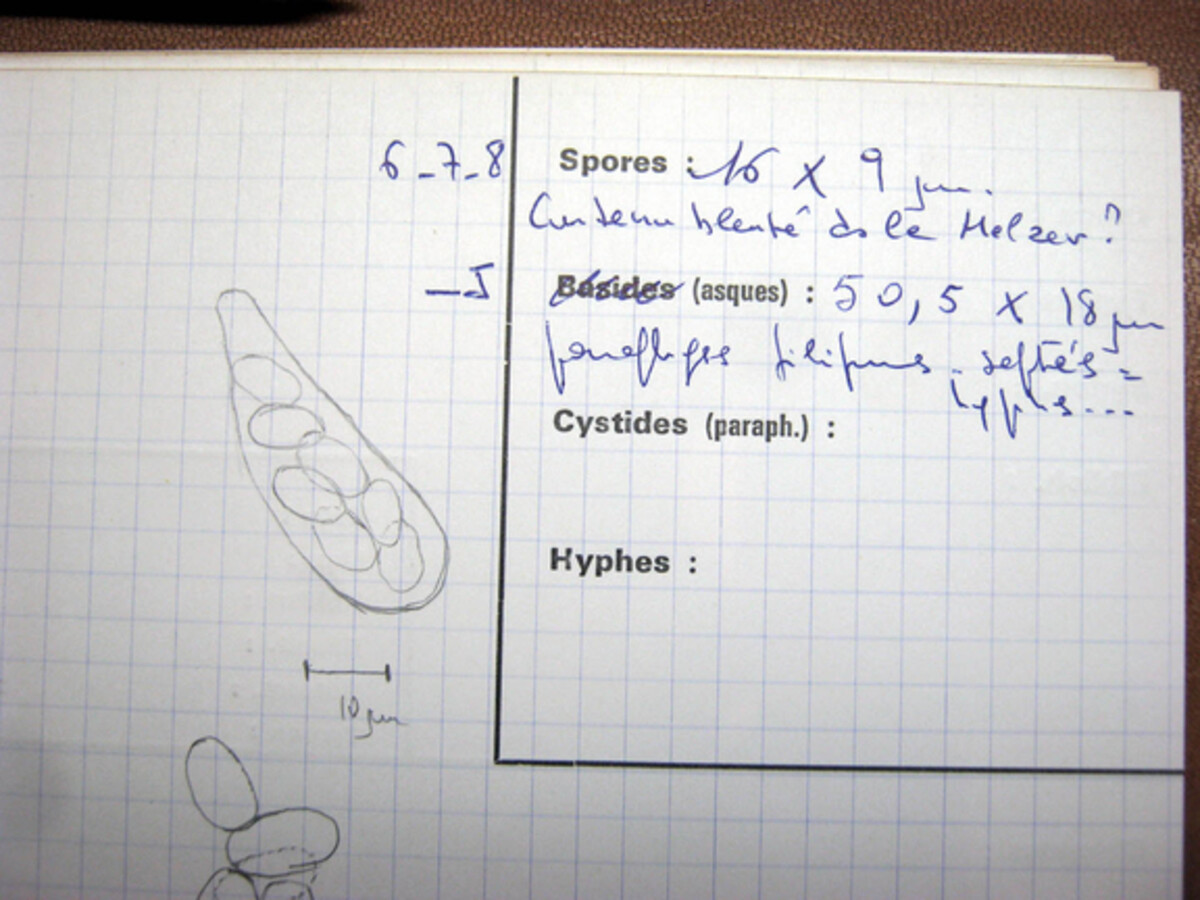 6 - 7 - 8
Spores : 16 x 9 µm.
Contenu bleuté ds le Melzer ?
- 5
Basides (asques) : 50,5 x 18 µm
paraphyses filiformes. septés =
hyphes...
Cystides (paraph.) :
Hyphes :
10 µm